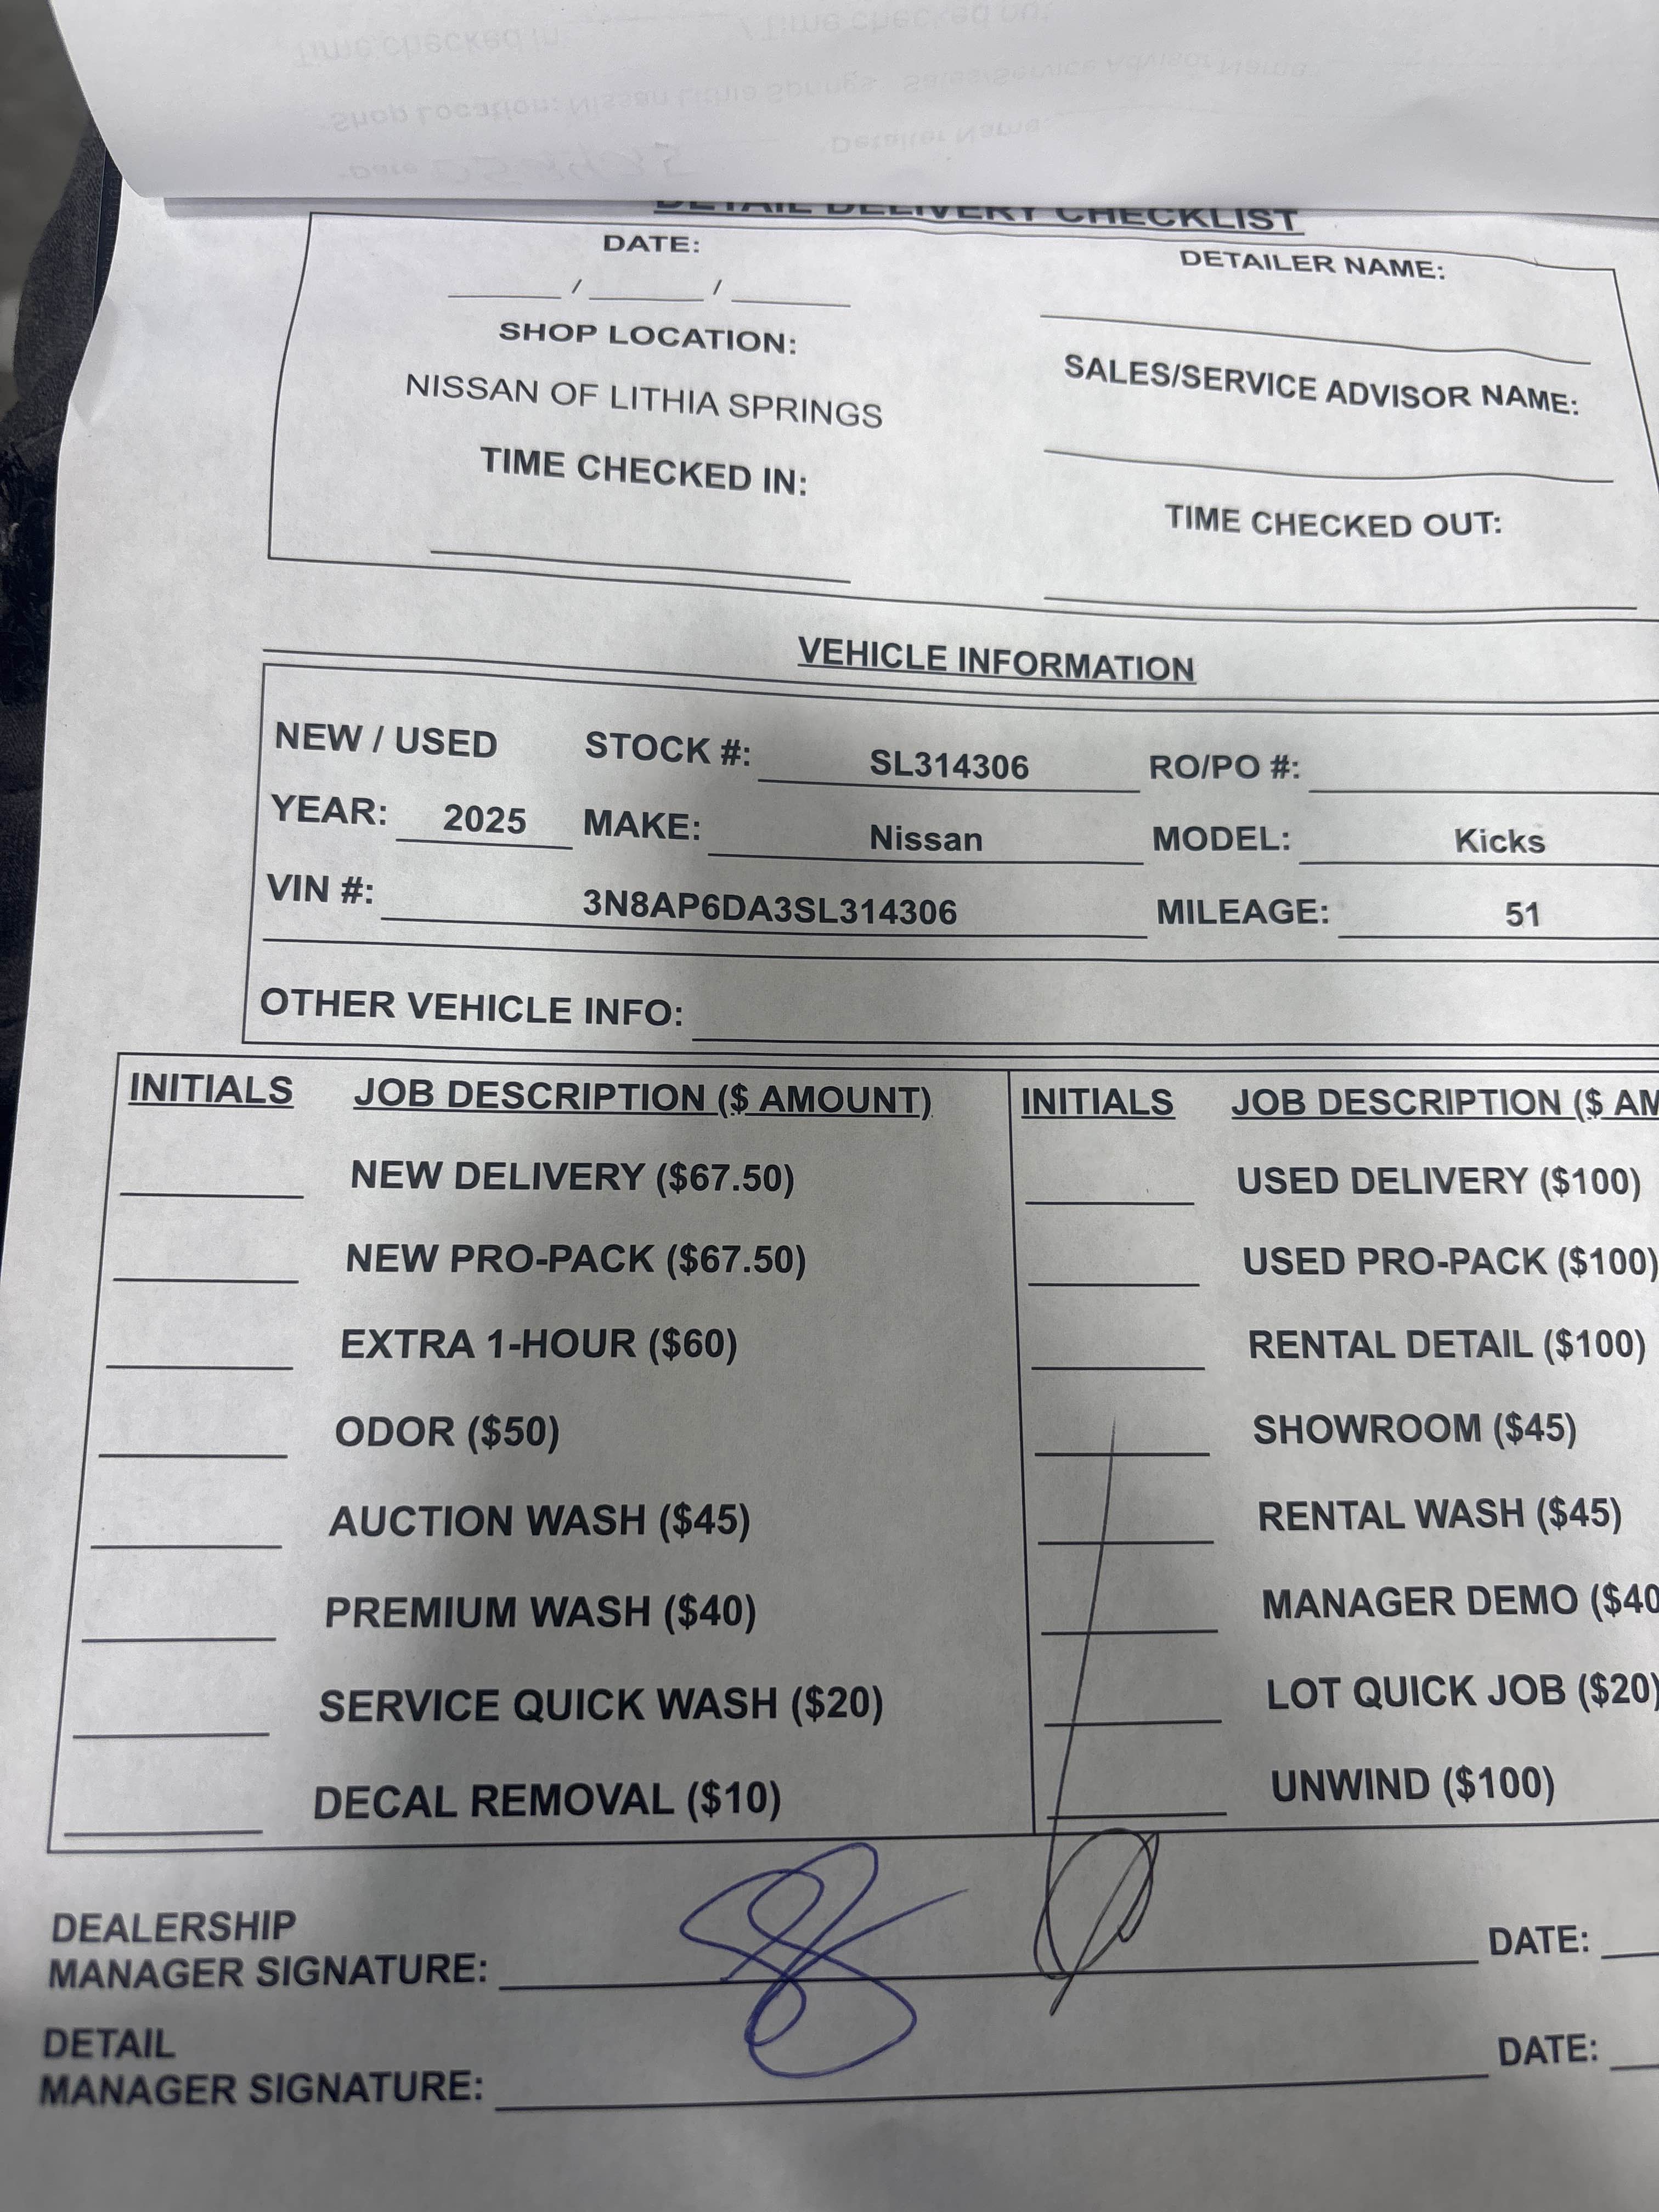 DETAIL DELIVERY CHECKLIST
DATE:
____ / ____ / ____
SHOP LOCATION:
NISSAN OF LITHIA SPRINGS
TIME CHECKED IN:
DETAILER NAME:
SALES/SERVICE ADVISOR NAME:
TIME CHECKED OUT:
VEHICLE INFORMATION
NEW / USED STOCK #: SL314306 RO/PO #:
YEAR: 2025 MAKE: Nissan MODEL: Kicks
VIN #: 3N8AP6DA3SL314306 MILEAGE: 51
OTHER VEHICLE INFO:
INITIALS JOB DESCRIPTION ($ AMOUNT)
NEW DELIVERY ($67.50)
NEW PRO-PACK ($67.50)
EXTRA 1-HOUR ($60)
ODOR ($50)
AUCTION WASH ($45)
PREMIUM WASH ($40)
SERVICE QUICK WASH ($20)
DECAL REMOVAL ($10)
INITIALS JOB DESCRIPTION ($ AM
USED DELIVERY ($100)
USED PRO-PACK ($100)
RENTAL DETAIL ($100)
SHOWROOM ($45)
RENTAL WASH ($45)
MANAGER DEMO ($40
LOT QUICK JOB ($20)
UNWIND ($100)
DEALERSHIP
MANAGER SIGNATURE: DATE:
DETAIL
MANAGER SIGNATURE: DATE: